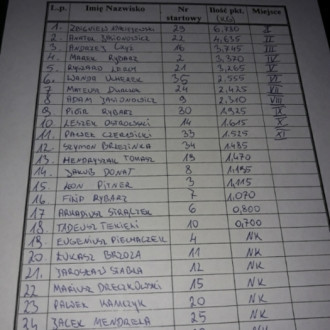 L.p. Imię Nazwisko Nr startowy Ilość pkt. (KG) Miejsce
1. ZBIGNIEW 23 6,730 I
2. 22 4,635 II
3. ANDRZEJ 16 3,745 III
4. MAREK RYBARZ 2 3,370 IV
5. RYSZARD 21 3,265 V
6. WANDA 35 2,555 VI
7. MATEUSZ DUDKA 24 2,425 VII
8. ADAM JASIONOWICZ 9 2,310 VIII
9. PIOTR RYBARZ 30 1,925 IX
10 LESZEK DĄBROWSKI 14 1,615 X
11 PAWEŁ 33 1,525 XI
12 SZYMON BRZEZINKA 34 1,485
13. TOMASZ 13 1,470
14. JAKUB DONAT 8 1,195
15. PITNER 3 1,115
16 FILIP RYBARZ 7 1,070
17 ARKADIUSZ 6 0,800
18 TADEUSZ TEKIELI 10 0,700
19. EUGENIUSZ PIECHACZEK 4 NK
20 ŁUKASZ BRZOZA 11 NK
21. JAROSŁAW 12 NK
22 MARIUSZ ORZECHOWSKI 15 NK
23 PAWEŁ 20 NK
24 JACEK MENDRELA 25 NK